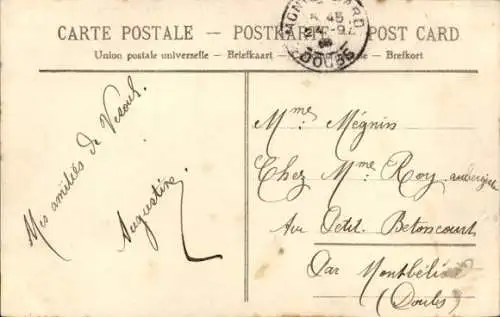 CARTE POSTALE — POSTKARTE — POST CARD
Union postale universelle — Briefkaart — Brefkort
DOUBS
Mes amitiés de Vesoul.
Augustine
Mme Mégnin
Chez Mme Roy aubergiste
Au Petit. Betoncourt
Par Montbéliard
(Doubs)